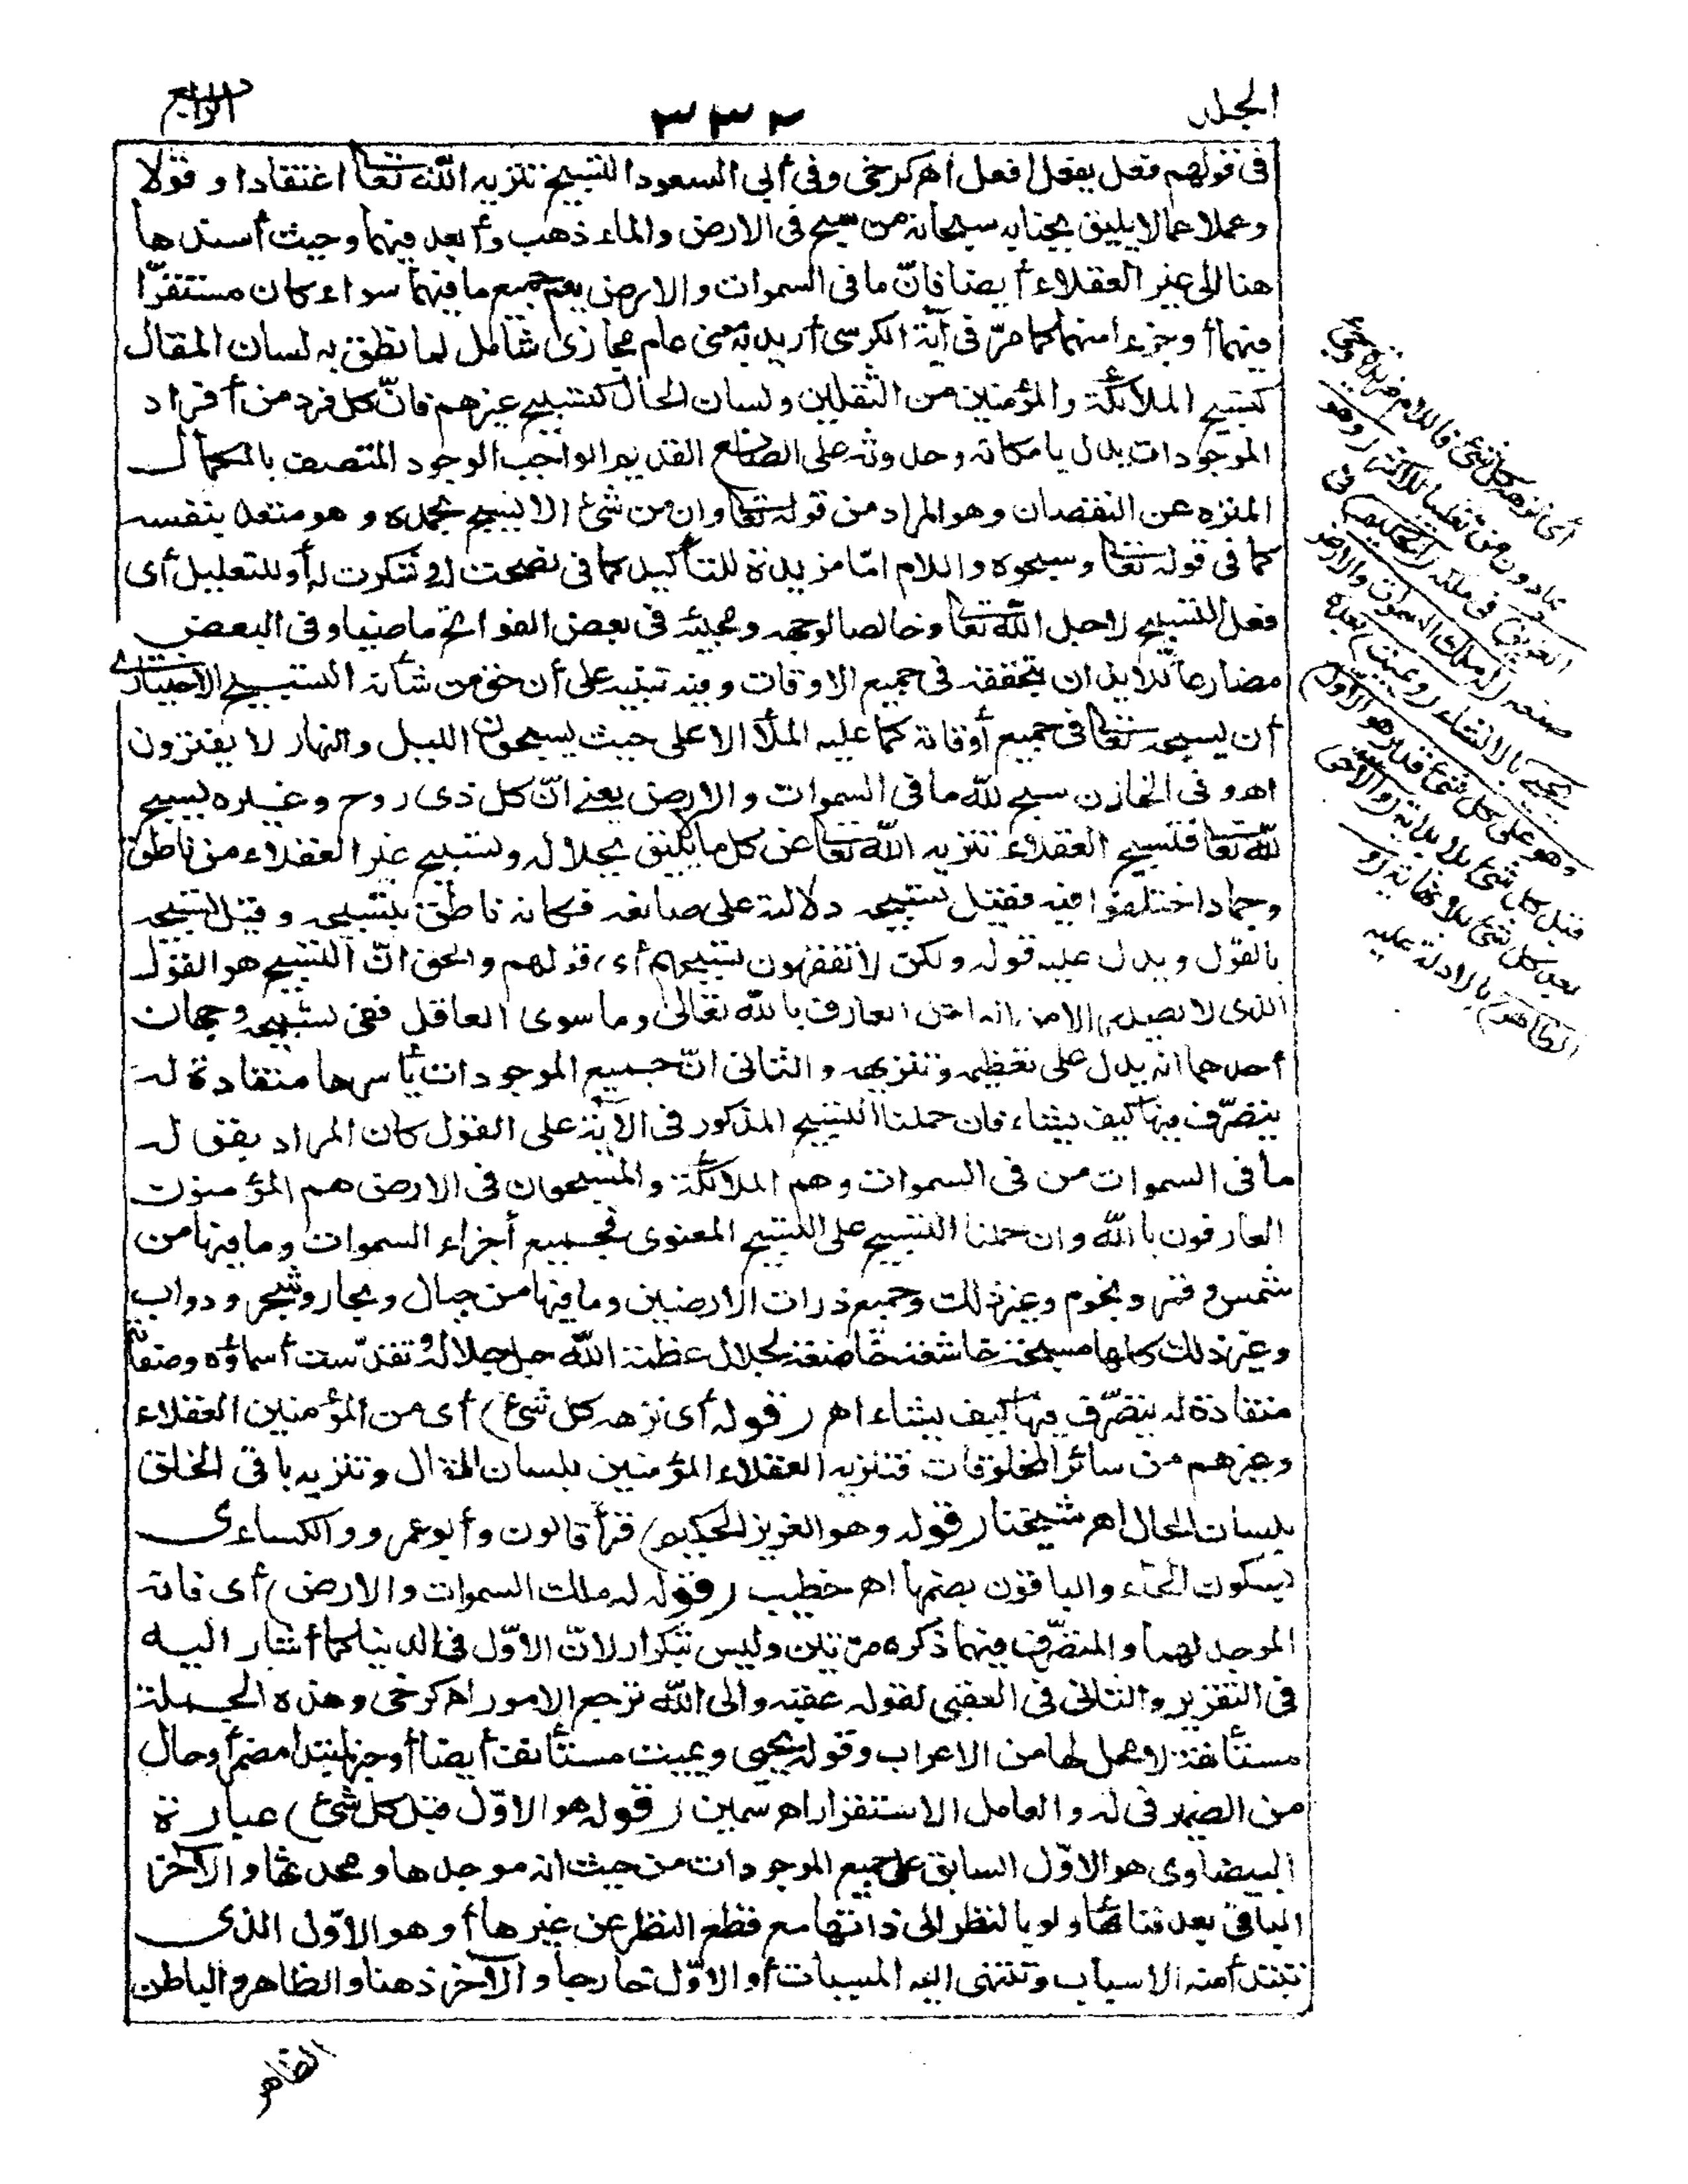 الجلد
٣٣٢
الرابع
فى قولهم فعل يفعل افعل اهر كرخى وفى أبى السعود التسبيح تنزيه الله تعا اعتقادا و قولا
وعملا عما لا يليق بجنابه سبحانه من سبح فى الارض والماء ذهب وأبعد فيهما وحيث أسند ها
هنا الى غير العقلاء أيضا فانّ ما فى السموات والارض يعم جميع ما فيهما سواء كان مستقرّا
فيهما أو جزء امنهما كما مرّ فى آية الكرسى أريد به معنى عام مجازى شامل لما نطق به لسان المقال
كتسبيح الملائكة والمؤمنين من الثقلين ولسان الحال كتسبيح غيرهم فانّ كل فرد من أفراد
الموجودات يدل بامكانه وحدوثه على الصانع القديم الواجب الوجود المتصف بالكمال
المنزه عن النقصان وهو المراد من قوله تعا وان من شئ الا يسبح بحمده و هو متعد بنفسه
كما فى قوله تعا وسبحوه واللام امّا مزيدة للتأكيد كما فى نصحت له و شكرت له أو للتعليل أى
فعل التسبيح لاجل الله تعا وخالصا لوجهه ومجيئه فى بعض الفواتح ماضيا وفى البعض
مضارعا للايذان بتحققه فى جميع الاوقات وفيه تنبيه على أن حق من شأنه التسبيح الاختيارى
أن يسبحه تعا فى جميع أوقاته كما عليه الملأ الاعلى حيث يسبحون الليل والنهار لا يفترون
اهر وفى الخازن سبح لله ما فى السموات والارض يعنى انّ كل ذى روح وغيره يسبح
لله تعا فتسبيح العقلاء تنزيه الله تعا عن كل ما لا يليق بجلاله وتسبيح غير العقلاء من ناطق
وجماد اختلفوا فيه فقيل تسبيحه دلالته على صانعه فكانه ناطق بتسبيحه وقيل تسبيحه
بالقول ويدل عليه قوله ولكن لا تفقهون تسبيحهم أى قولهم والحق انّ التسبيح هو القول
الذى لا يصدر الا من العاقل العارف بالله تعالى وما سوى العاقل ففى تسبيحه وجهان
أحدهما انه يدل على تعظيمه وتنزيهه والثانى انّ جميع الموجودات بأسرها منقادة له
يتصرّف فيها كيف يشاء فان حملنا التسبيح المذكور فى الآية على القول كان المراد بقوله
ما فى السموات من فى السموات وهم الملائكة والمسبحون فى الارض هم المؤمنون
العارفون بالله وان حملنا التسبيح على التسبيح المعنوى فجميع أجزاء السموات وما فيها من
شمس وقمر ونجوم وغير ذلك وجميع ذرات الارضين وما فيها من جبال وبحار وشجر و دواب
وغير ذلك كلها مسبحة خاشعة خاضعة لجلال عظمة الله جل جلاله وتقدّست أسماؤه وصفاته
منقادة له يتصرّف فيها كيف يشاء اهر (قوله أى نزهه كل شئ) أى من المؤمنين العقلاء
وغيرهم من سائر المخلوقات فتنزيه العقلاء المؤمنين بلسان المقال وتنزيه باقى الخلق
بلسان الحال اهر شيخنا (قوله وهو العزيز الحكيم) قرأ قالون وأبو عمرو والكساءى
بسكون الهاء والباقون بضمها اهر خطيب (قوله له ملك السموات والارض) أى فانه
الموجد لهما والمتصرّف فيهما ذكره مرّتين وليس تكرار لانّ الاوّل فى الدنيا كما أشار اليه
فى التقرير والثانى فى العقبى لقوله عقبه والى الله ترجع الامور اهر كرخى وهذه الجملة
مستأنفة لا محل لها من الاعراب وقوله يحيى ويميت مستأنفة أيضا أو خبر لمبتدا مضمر أو حال
من الضمير فى له والعامل الاستقرار اهر سمين (قوله هو الاوّل قبل كل شئ) عبارة
البيضاوى هو الاوّل السابق على جميع الموجودات من حيث انه موجدها ومحدثها و الآخر
الباقى بعد فنائها ولو بالنظر الى ذاتها مع قطع النظر عن غيرها أو هو الاوّل الذى
تبتدأ منه الاسباب وتنتهى اليه المسببات أو الاوّل خارجا و الآخر ذهنا والظاهر والباطن
أى نزهه كل شئ فاللام مزيدة وجئ
بما دون من تغليبا للاكثر (وهو
العزيز) فى ملكه (الحكيم) فى
صنعه (له ملك السموات والارض
يحيى) بالانشاء (ويميت) بعده
(وهو على كل شئ قدير هو الاول)
قبل كل شئ بلا بداية (والآخر)
بعد كل شئ بلا نهاية (و
الظاهر) بالادلة عليه
الظاهر